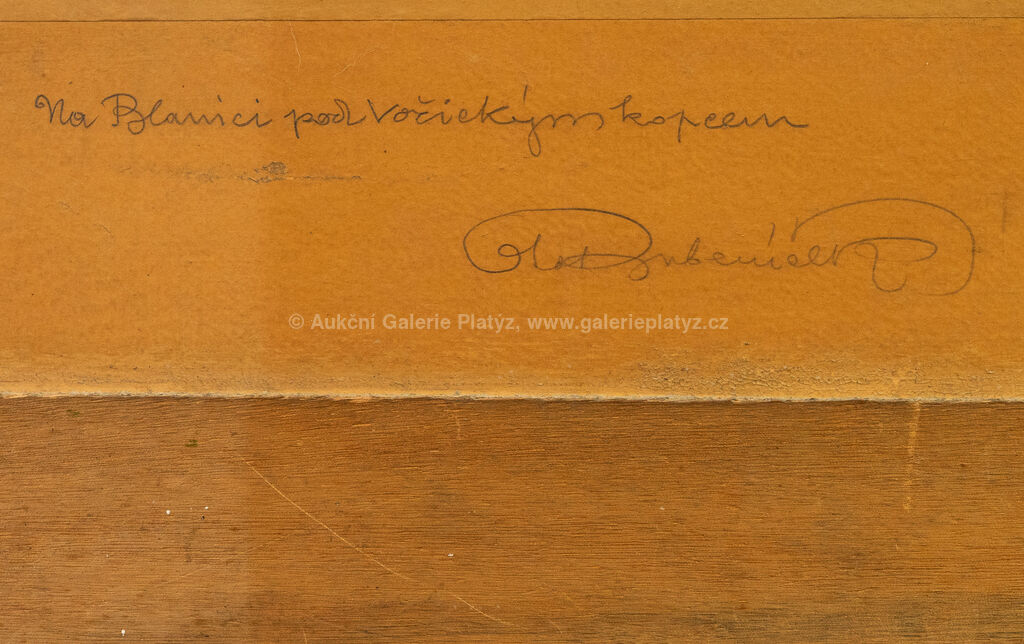 Na Blanici pod Vočickým kopcem
Ota Bubeníček
© Aukční Galerie Platýz, www.galerieplatyz.cz